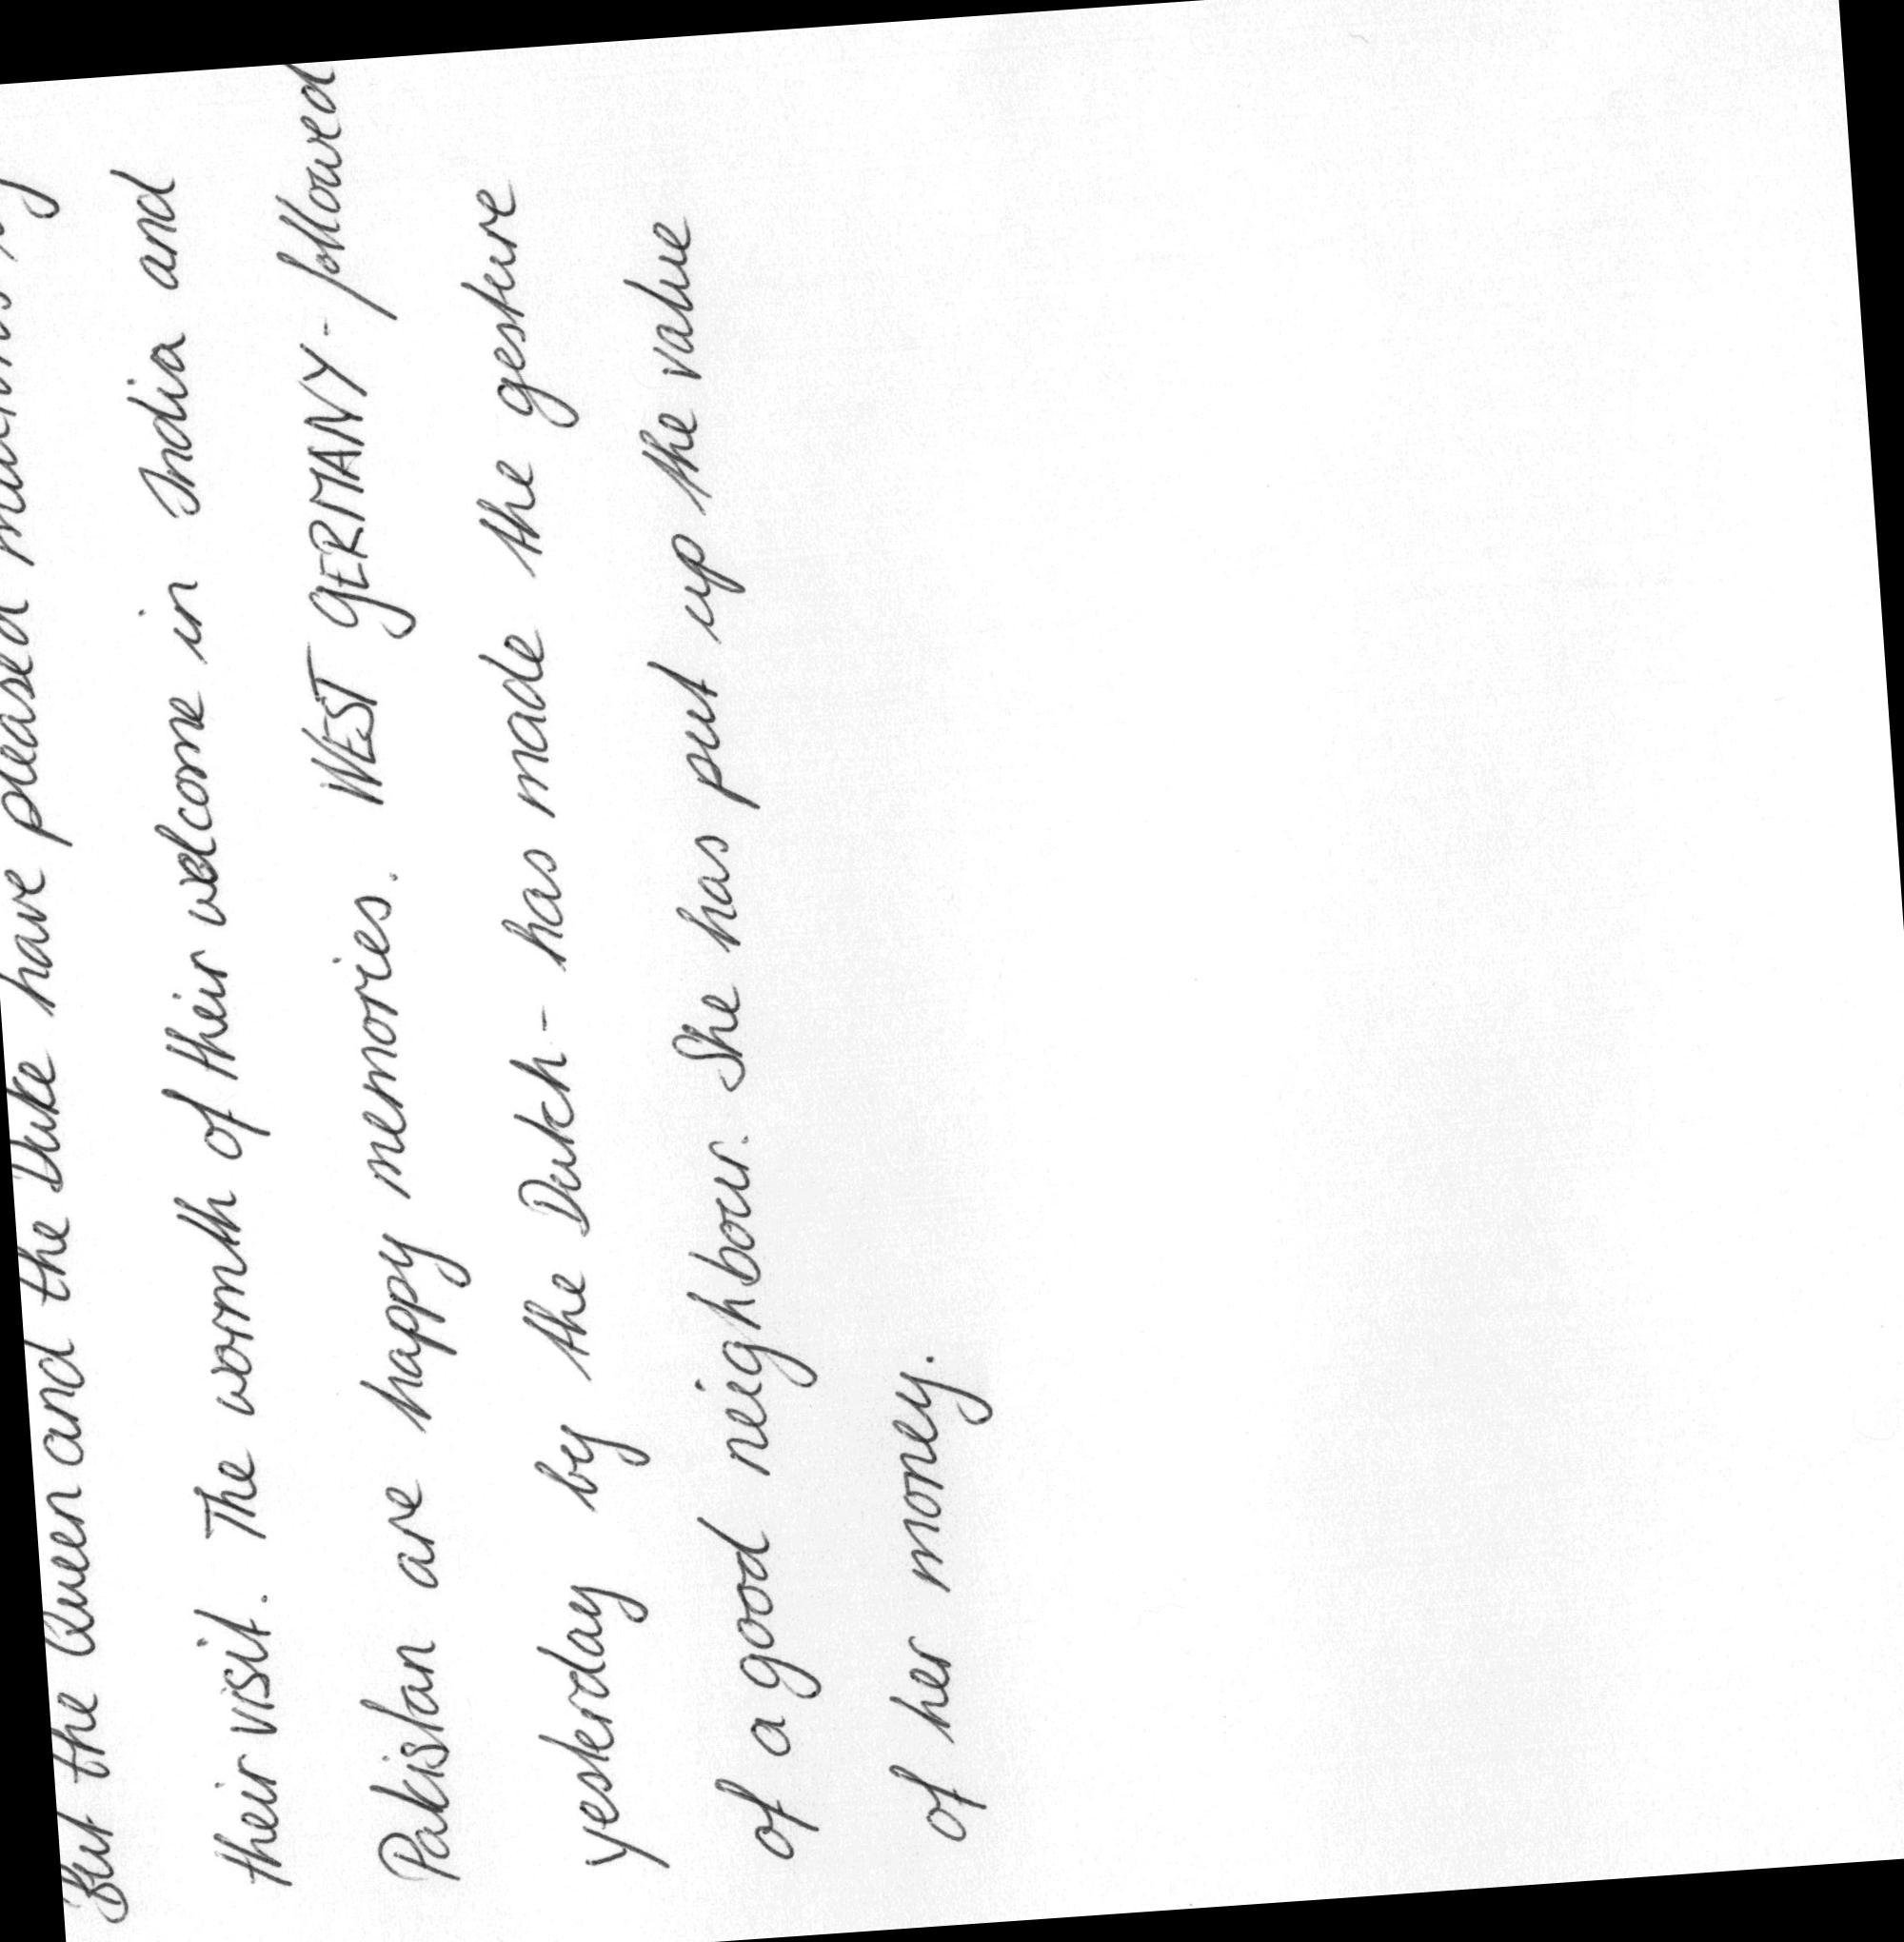 But the Queen and the Duke have pleased
their visit. The wormth of their welcome in India and
Pakistan are happy memories. WEST GERMANY - followed
yesterday by the Dutch - has made the gesture
of a good neighbour. She has put up the value
of her money.